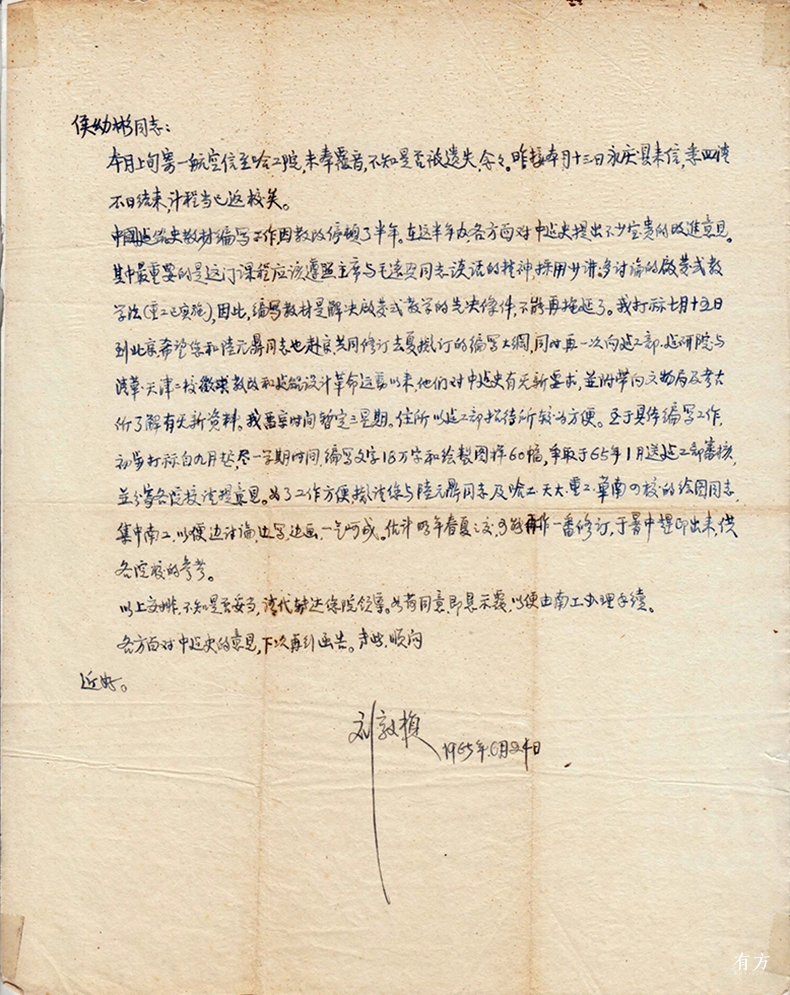 侯幼彬同志：
本月上旬寄一航空信至哈工院，未奉覆音，不知是否被遗失，念念。昨接本月十三日永庆县来信，悉四清
不日结束，计程当已返校矣。
中国建筑史教材编写工作因教改停顿了半年。在这半年内，各方面对中建史提出不少宝贵的改进意见。
其中最重要的是这门课程应该遵照主席与毛远新同志谈话的精神，採用少讲多讨论的啟蒙式教
学法（重工已实施），因此，编写教材是解决啟蒙式教学的先决条件，不能再拖延了。我打祘七月十五日
到北京希望您和陆元鼎同志也赴京，共同修订去夏拟订的编写大綱，同时再一次向建工部、建研院、与
清华、天津二校徵求教改和建筑设计革命运动以来，他们对中建史有无新要求，並附带向文物局及考古
所了解有无新资料。我留京时间暂定三星期。住所以建工部招待所较为方便。至于具体编写工作，
初步打祘自九月起，尽一学期时间，编写文字18万字和绘製图样60幅，争取于65年1月送建工部審核，
並分寄各院校请提意见。为了工作方便拟请您与陆元鼎同志及哈工、天大、重工、华南四校的绘图同志，
集中南工，以便边讨论，边写，边画，一气呵成。估计明年春夏之交，可能再作一番修订，于暑中趕印出来，供
各院校的参考。
以上安排，不知是否妥当，请代转达您院领导。如荷同意，即恳示覆，以便由南工办理手续。
各方面对中建史的意见，下次再刻画告。专此，顺问
近好。
刘敦桢
1965年6月24日
有方